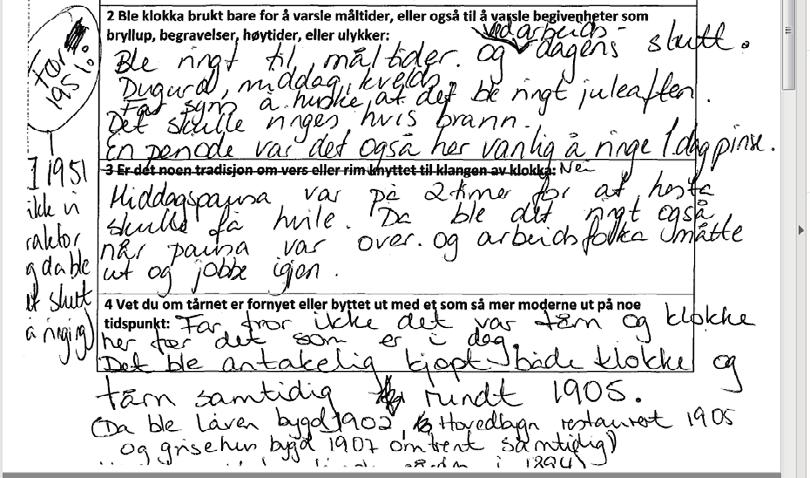 2 Ble klokka brukt bare for å varsle måltider, eller også til å varsle begivenheter som
bryllup, begravelser, høytider, eller ulykker:
ved arbeids-
Ble ringt til måltider. og dagens slutt.
Dugurd, middag, kvelds.
Far syns å huske, at det be ringt juleaften.
Det skulle ringes hvis brann.
En periode var det også her vanlig å ringe 1. dag pinse.
Før
1951!
3 Er det noen tradisjon om vers eller rim knyttet til klangen av klokka: Nei
Middagspausa var på 2 timer for at hesta
skulle få hvile. Da ble det ringt også
når pausa var over. og arbeidsfolka måtte
ut og jobbe igjen.
I 1951
ikk vi
raktor
g da ble
et slutt
å ringing)
4 Vet du om tårnet er fornyet eller byttet ut med et som så mer moderne ut på noe
tidspunkt: Far tror ikke det var tårn og klokke
her før det som er i dag.
Det ble antakelig kjøpt både klokke og
tårn samtidig rundt 1905.
(Da ble låven bygd 1902, Hovedbygn restaurert 1905
og grisehus bygd 1907 omtrent samtidig)
i 1894)